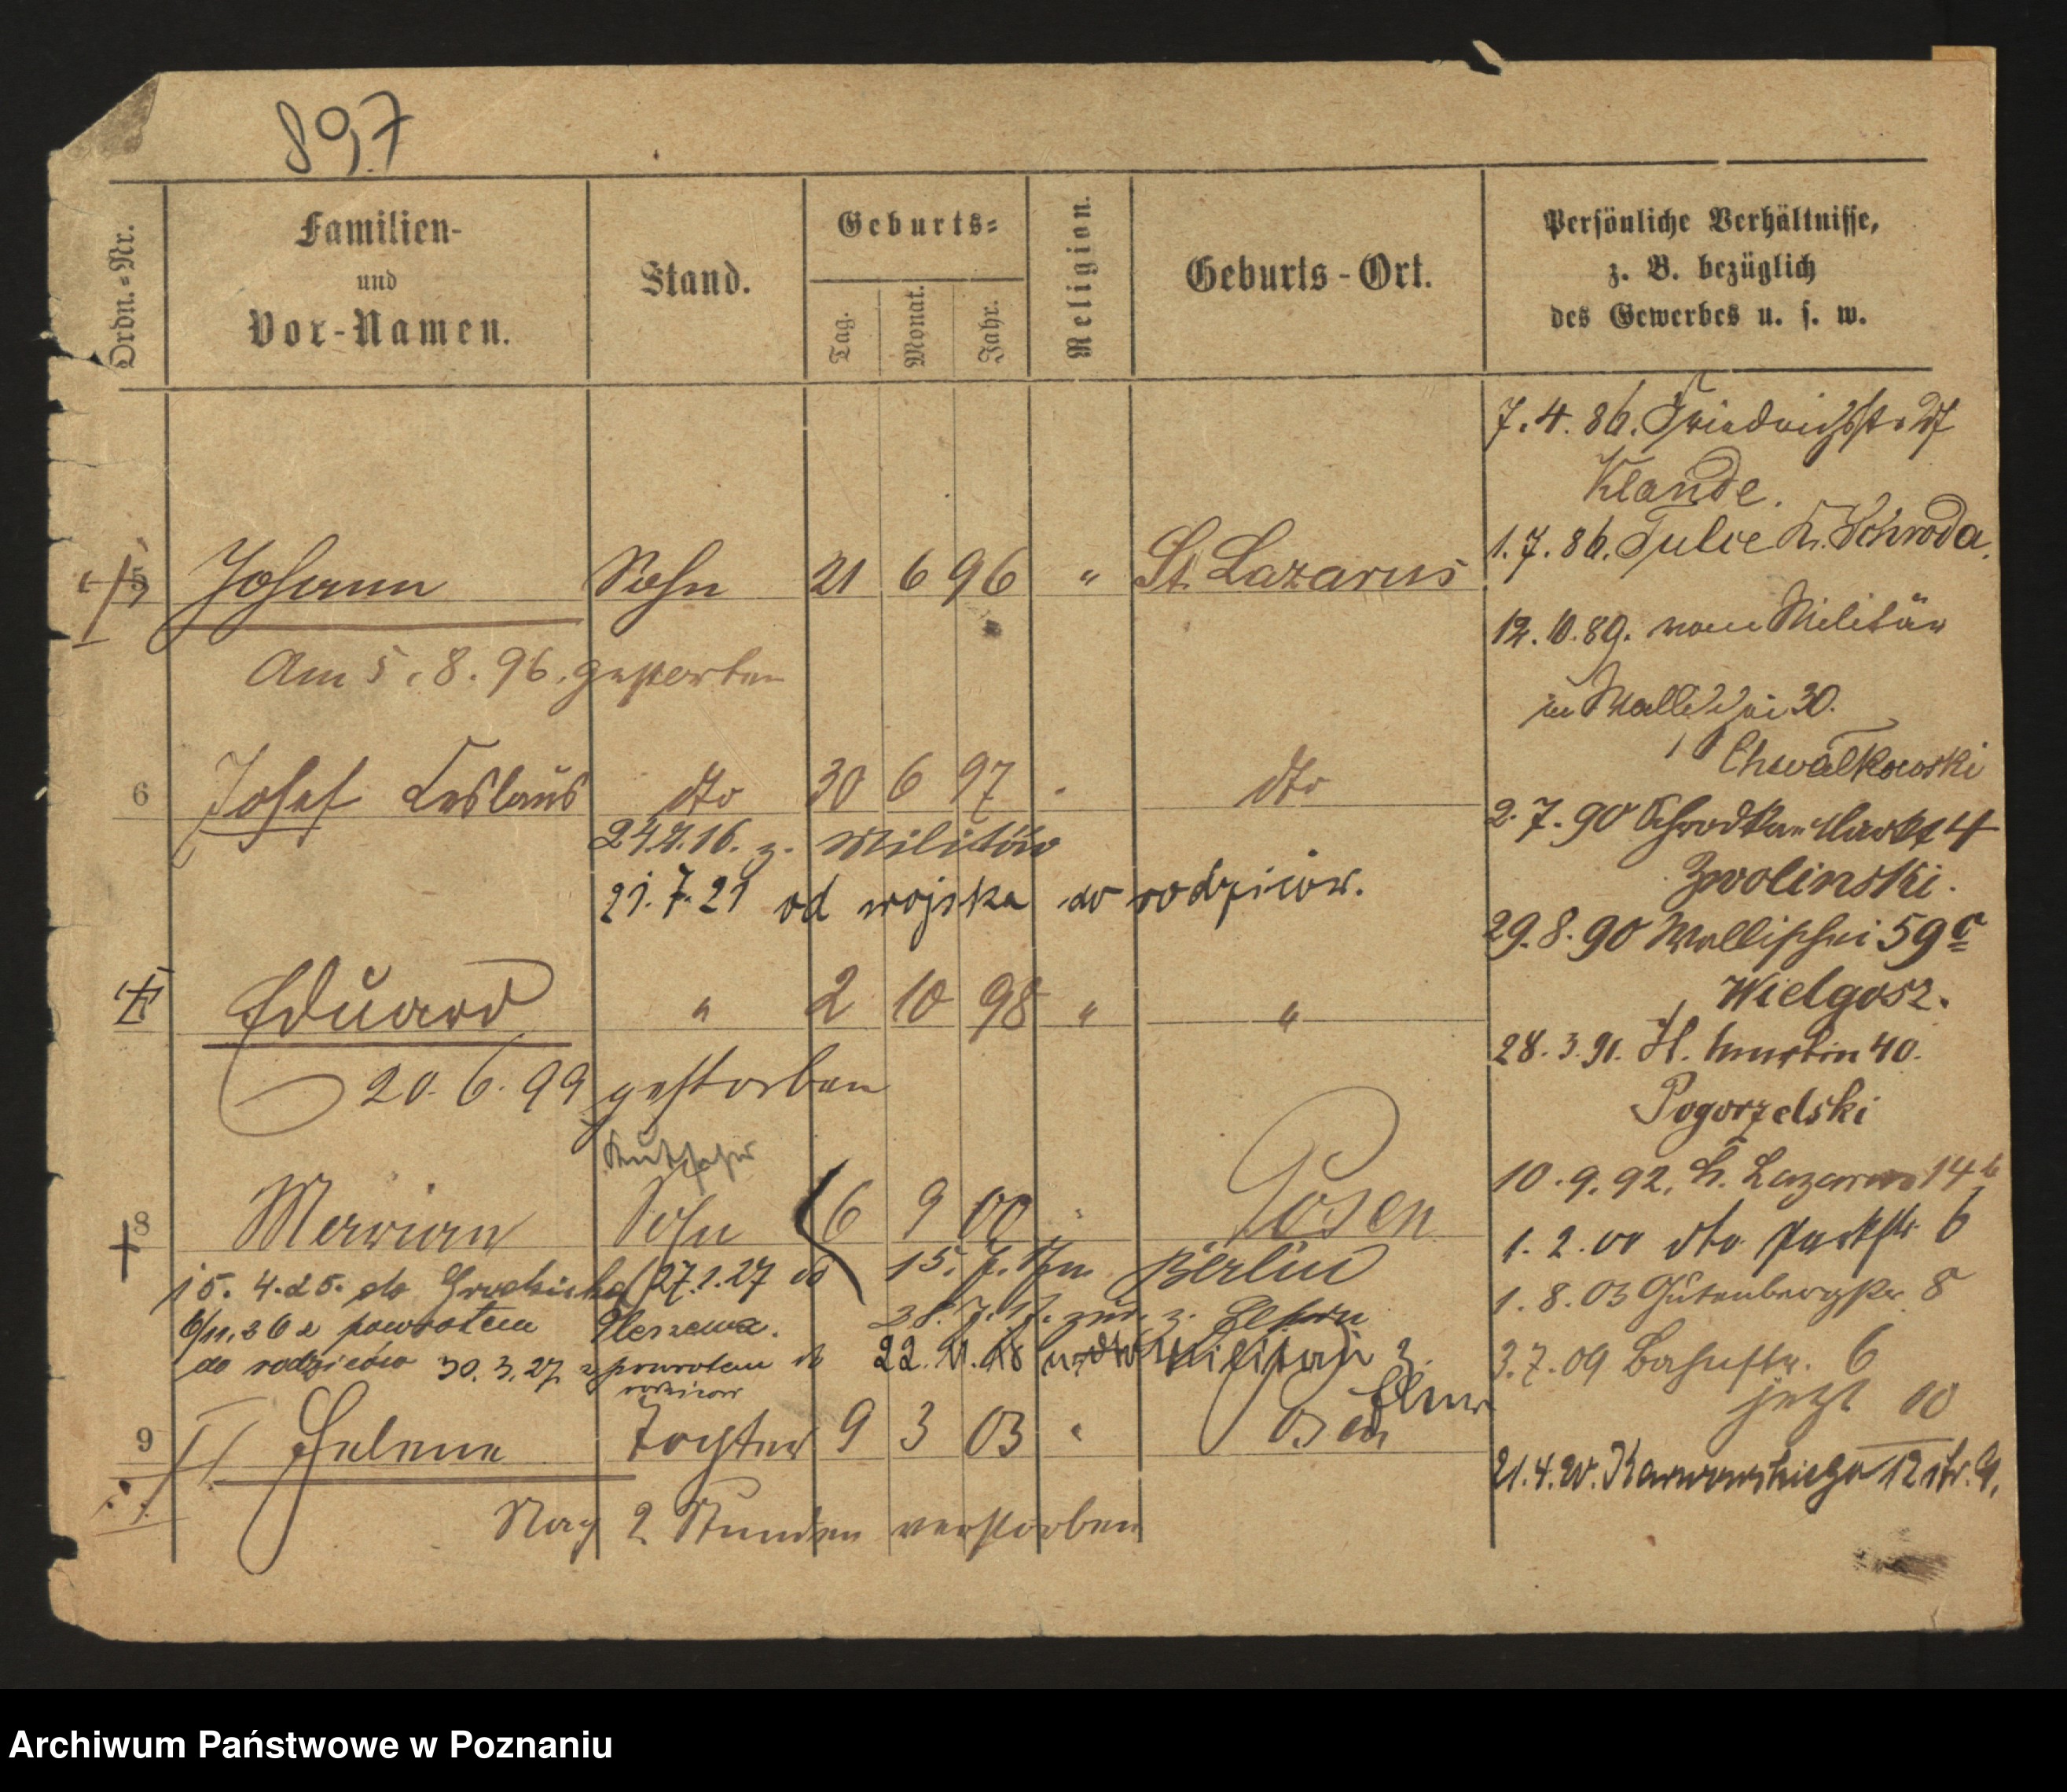 897
Ordn.-Nr.
Familien-
und
Vor-Namen.
Stand.
Geburts-
Tag.
Monat.
Jahr.
Religion.
Geburts-Ort.
Persönliche Verhältnisse,
z. B. bezüglich
des Gewerbes u. s. w.
7.4.86. Friedrichstr.
Klande.
1.7.86. Tulce Kr. Schroda.
5 Johann Sohn 21 6 96 " St. Lazarus
12.10.89. vom Militär
Am 5.8.96. gestorben
in Wallischei 30.
Chwałkowski
6 Josef Ceslaus dto 30 6 97 " dto
2.7.90 Schrodkaer Markt 4
24.4.16. z. Militär
Zwolinski.
21.7.21 od wojska do rodziców.
29.8.90 Wallischei 59c
Wielgosz.
Eduard " 2 10 98 " "
28.3.91. St. Martin 40.
20.6.99 gestorben
Pogorzelski
Kutscher
10.9.92. St. Lazarus 14b
8 Marian Sohn 6 9 00 " Posen
1.2.00 dto Parkstr 6
15.4.25. do 27.1.27 do
15.7. Berlin
1.8.03 Gutenbergstr. 8
6/11.26 z powrotem Pleszewa.
28.7.17. zur. z. Eltern
do rodziców 30.3.27 z powrotem do
rodziców
22.11.18 Militär z.
Eltern
3.7.09 Bahnstr. 6
jetzt 10
9 Helene Tochter 9 3 03 " Posen
21.4.20. Karwowskiego 12 str. 9.
Nach 2 Stunden verstorben
Archiwum Państwowe w Poznaniu